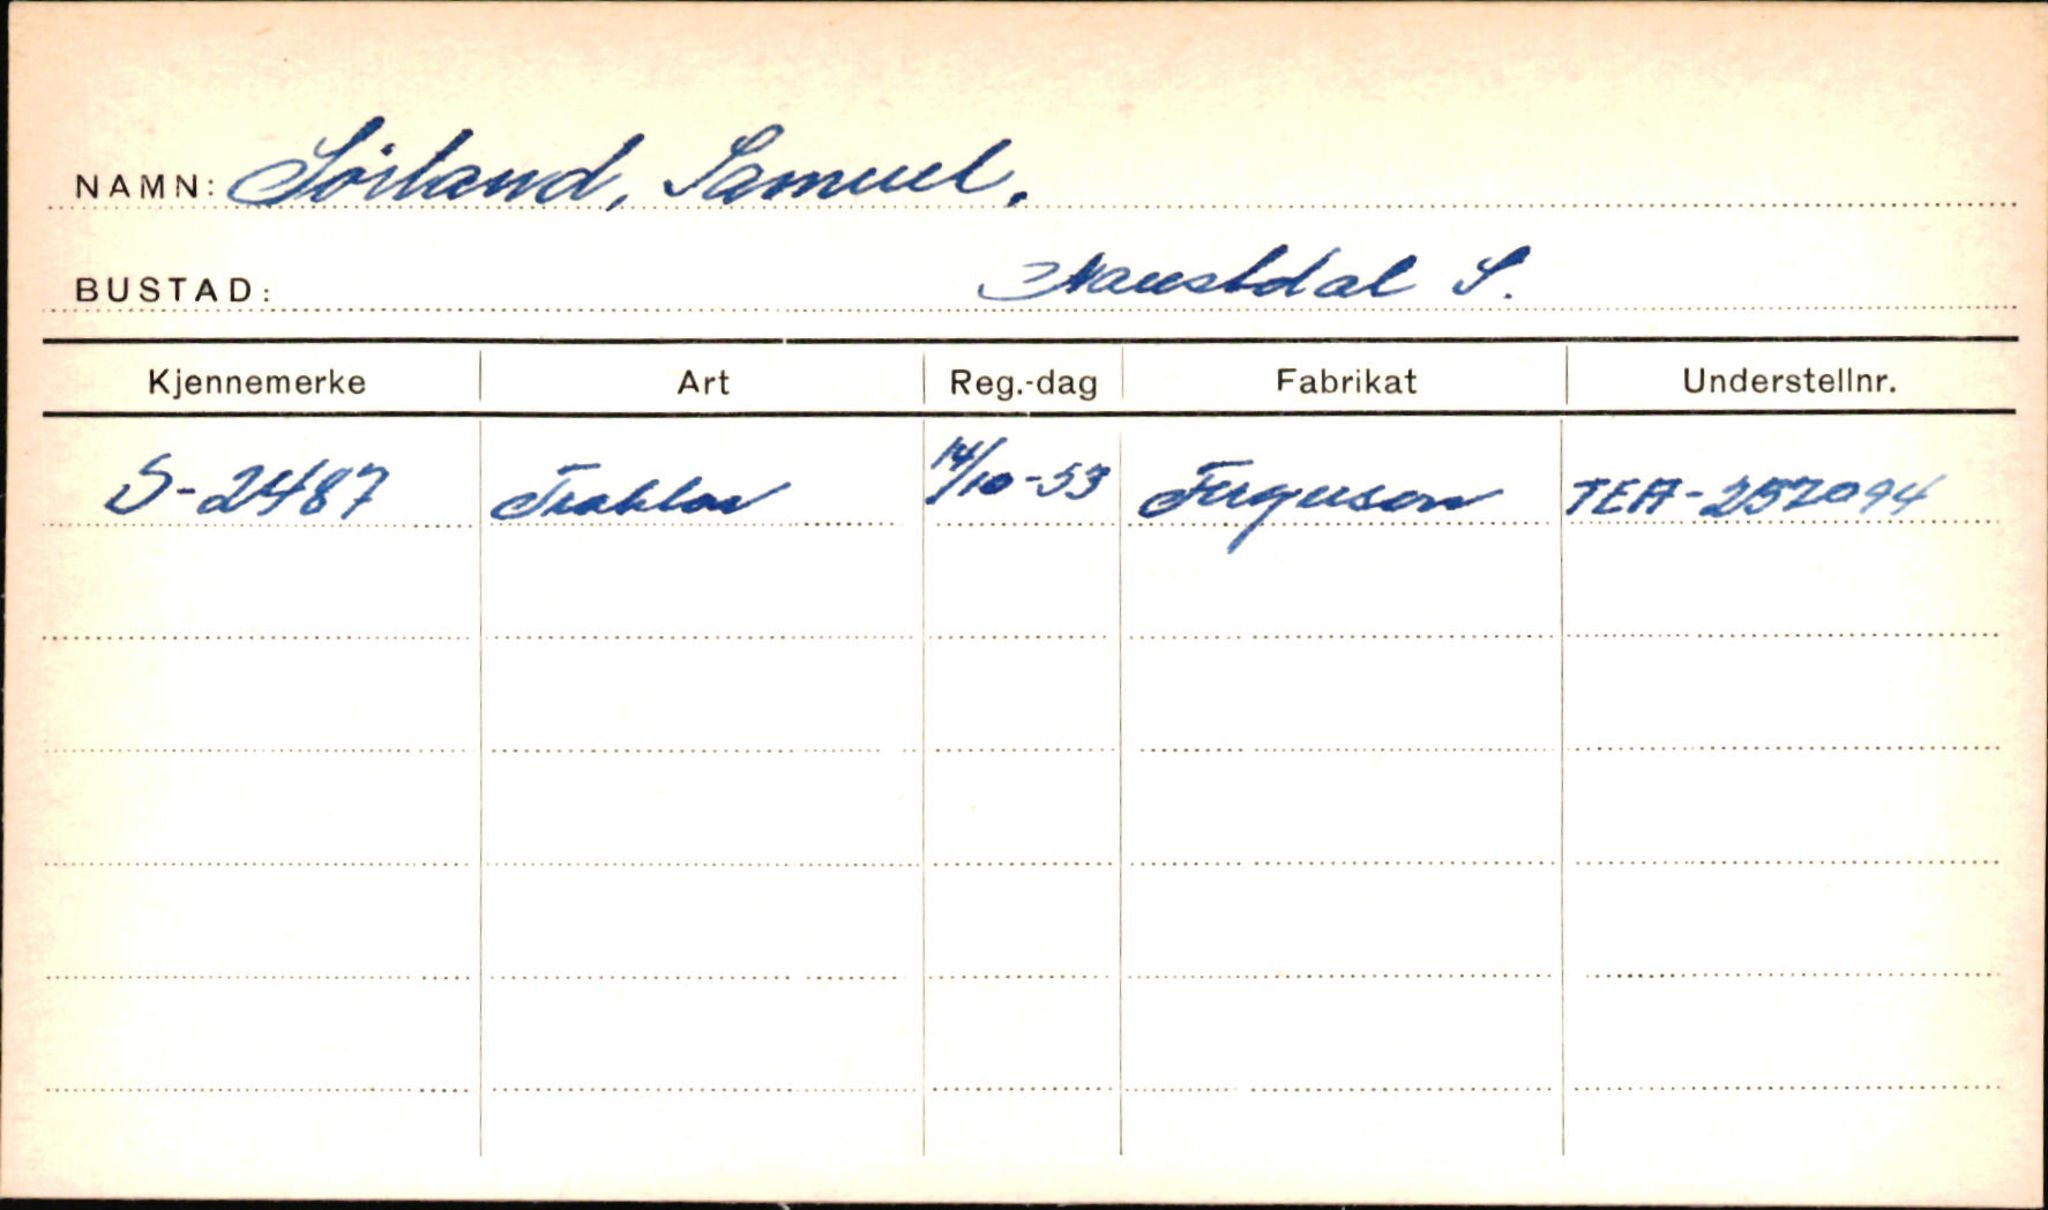 NAMN: Sörland, Samuel.
BUSTAD: Naustdal S.
Kjennemerke Art Reg.-dag Fabrikat Understellnr.
S-2487 Traktor 14/10-53 Ferguson TEA-257094